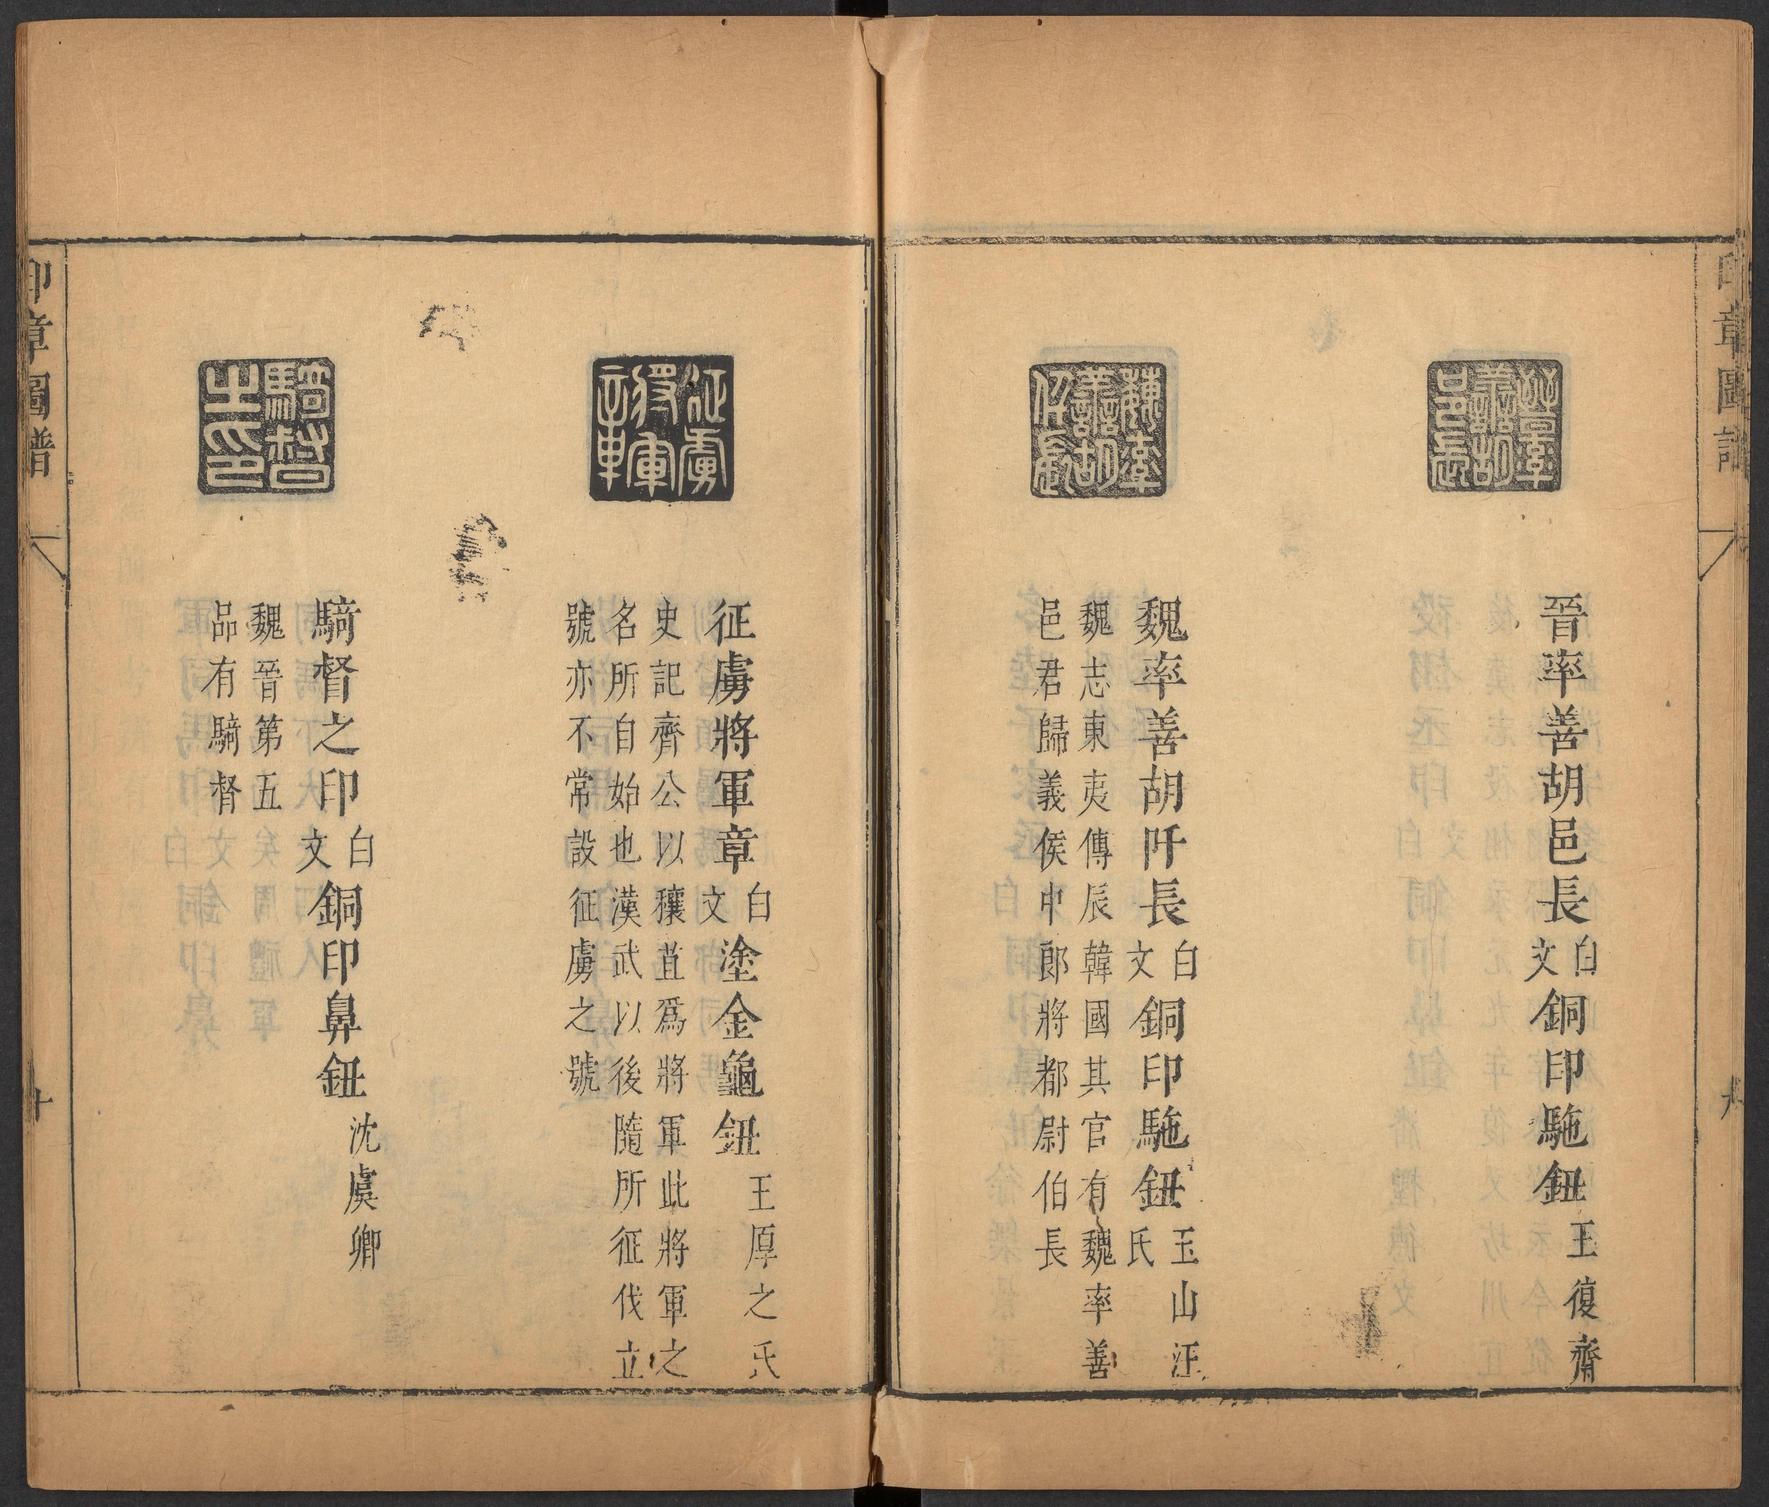 印章圖譜
九
晉率善胡邑長白文銅印駞鈕王復齋
魏率善胡阡長白文銅印駞鈕玉山汪氏
魏志東夷傳辰韓國其官有魏率善
邑君歸義侯中郎將都尉伯長
征虜將軍章白文塗金龜鈕王厚之氏
史記齊公以穰苴爲將軍此將軍之
名所自始也漢武以後隨所征伐立
號亦不常設征虜之號
騎督之印白文銅印鼻鈕沈虞卿
魏晉第五
品有騎督
印章圖譜
十